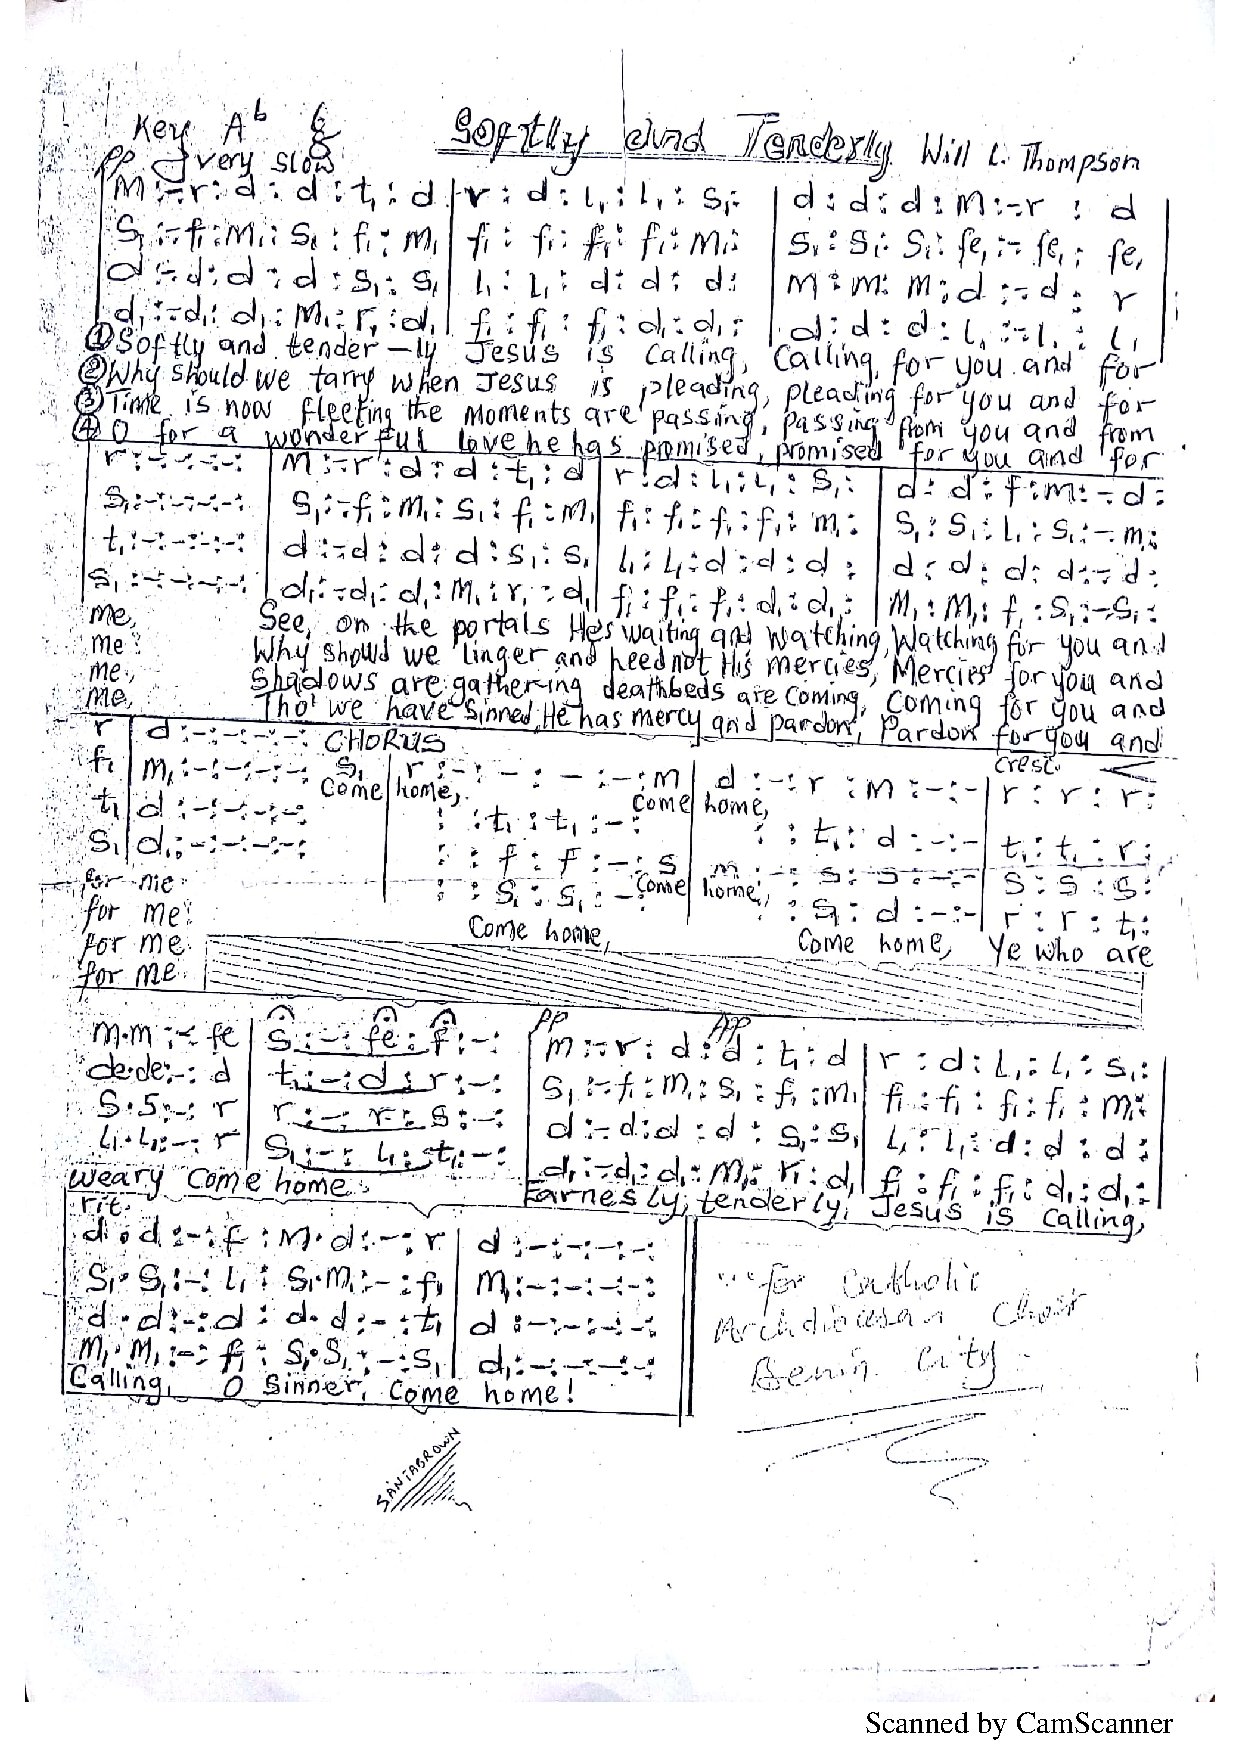 Key Ab 6/8 Softly and Tenderly Will L. Thompson
pp very slow
m :-.r : d : d : t₁ : d | r : d : l₁ : l₁ : s₁: | d : d : d : m :-.r : d
s₁ :-.f₁ : m₁ : s₁ : f₁ : m₁ | f₁ : f₁ : f₁ : f₁ : m₁: | s₁ : s₁ : s₁ : fe₁ :-.fe₁ : fe₁
d :-.d : d : d : s₁ : s₁ | l₁ : l₁ : d : d : d: | m : m : m : d :-.d : r
d₁ :-.d₁ : d₁ : m₁ : r₁ : d₁ | f₁ : f₁ : f₁ : d₁ : d₁: | d : d : d : l₁ :-.l₁ : l₁
① Softly and tender-ly Jesus is calling, Calling, for you and for
② Why should we tarry when Jesus is pleading, pleading for you and for
③ Time is now fleeting the moments are passing, passing from you and from
④ O for a wonderful love he has promised, promised for you and for
r :-:-:-:-: | m :-.r : d : d : t₁ : d | r : d : l₁ : l₁ : s₁: | d : d : f : m :-: d :
s₁ :-:-:-:-: | s₁ :-.f₁ : m₁ : s₁ : f₁ : m₁ | f₁ : f₁ : f₁ : f₁ : m₁: | s₁ : s₁ : l₁ : s₁ :-: m₁:
t₁ :-:-:-:-: | d :-.d : d : d : s₁ : s₁ | l₁ : l₁ : d : d : d : | d : d : d : d :-: d :
s₁ :-:-:-:-: | d₁ :-.d₁ : d₁ : m₁ : r₁ : d₁ | f₁ : f₁ : f₁ : d₁ : d₁: | m₁ : m₁ : f₁ : s₁ :-.s₁ :
me, See, on the portals He's waiting and watching, Watching for you and
me? Why should we linger and heed not His mercies, Mercies for you and
me, Shadows are gathering deathbeds are coming, Coming for you and
me, Tho' we have sinned, He has mercy and pardon, Pardon for you and
r | d :-:-:-:-: CHORUS cresc. <
f₁ | m₁ :-:-:-:-: s₁ | r :-:-:-:-: m | d :-: r : m :-:- | r : r : r :
Come home, come home,
t₁ | d :-:-:-:-: | : : t₁ : t₁ :-: | : : t₁ : d :-:- | t₁ : t₁ : r :
s₁ | d₁ :-:-:-:-: | : : f : f :-: s | m :-: s : s :-:- | s : s : s :
: : s₁ : s₁ :-: Come home, : s₁ : d :-:- | r : r : t₁:
for me.
for me? Come home, Come home, Ye who are
for me.
for me.
m.m :-: fe | s :-: fe : f :-: | pp m :-.r : d : d : t₁ : d | r : d : l₁ : l₁ : s₁:
de.de :-: d | t₁ :-: d : r :-: | s₁ :-.f₁ : m₁ : s₁ : f₁ : m₁ | f₁ : f₁ : f₁ : f₁ : m₁:
s.s :-: r | r :-: r : s :-: | d :-.d : d : d : s₁ : s₁ | l₁ : l₁ : d : d : d :
l₁.l₁ :-: r | s₁ :-: l₁ : t₁ :-: | d₁ :-.d₁ : d₁ : m₁ : r₁ : d₁ | f₁ : f₁ : f₁ : d₁ : d₁:
weary Come home. Earnesly, tenderly, Jesus is Calling,
rit.
d.d :-: f : m.d :-: r | d :-:-:-:-:
s₁.s₁ :-: l₁ : s₁.m₁ :-: f₁ | m₁ :-:-:-:-:
d.d :-: d : d.d :-: t₁ | d :-:-:-:-:
m₁.m₁ :-: f₁ : s₁.s₁ :-: s₁ | d₁ :-:-:-:-:
Calling, O Sinner, come home!
for Catholic
Archdiocesan Choir
Benin City
SANTABROWN
Scanned by CamScanner